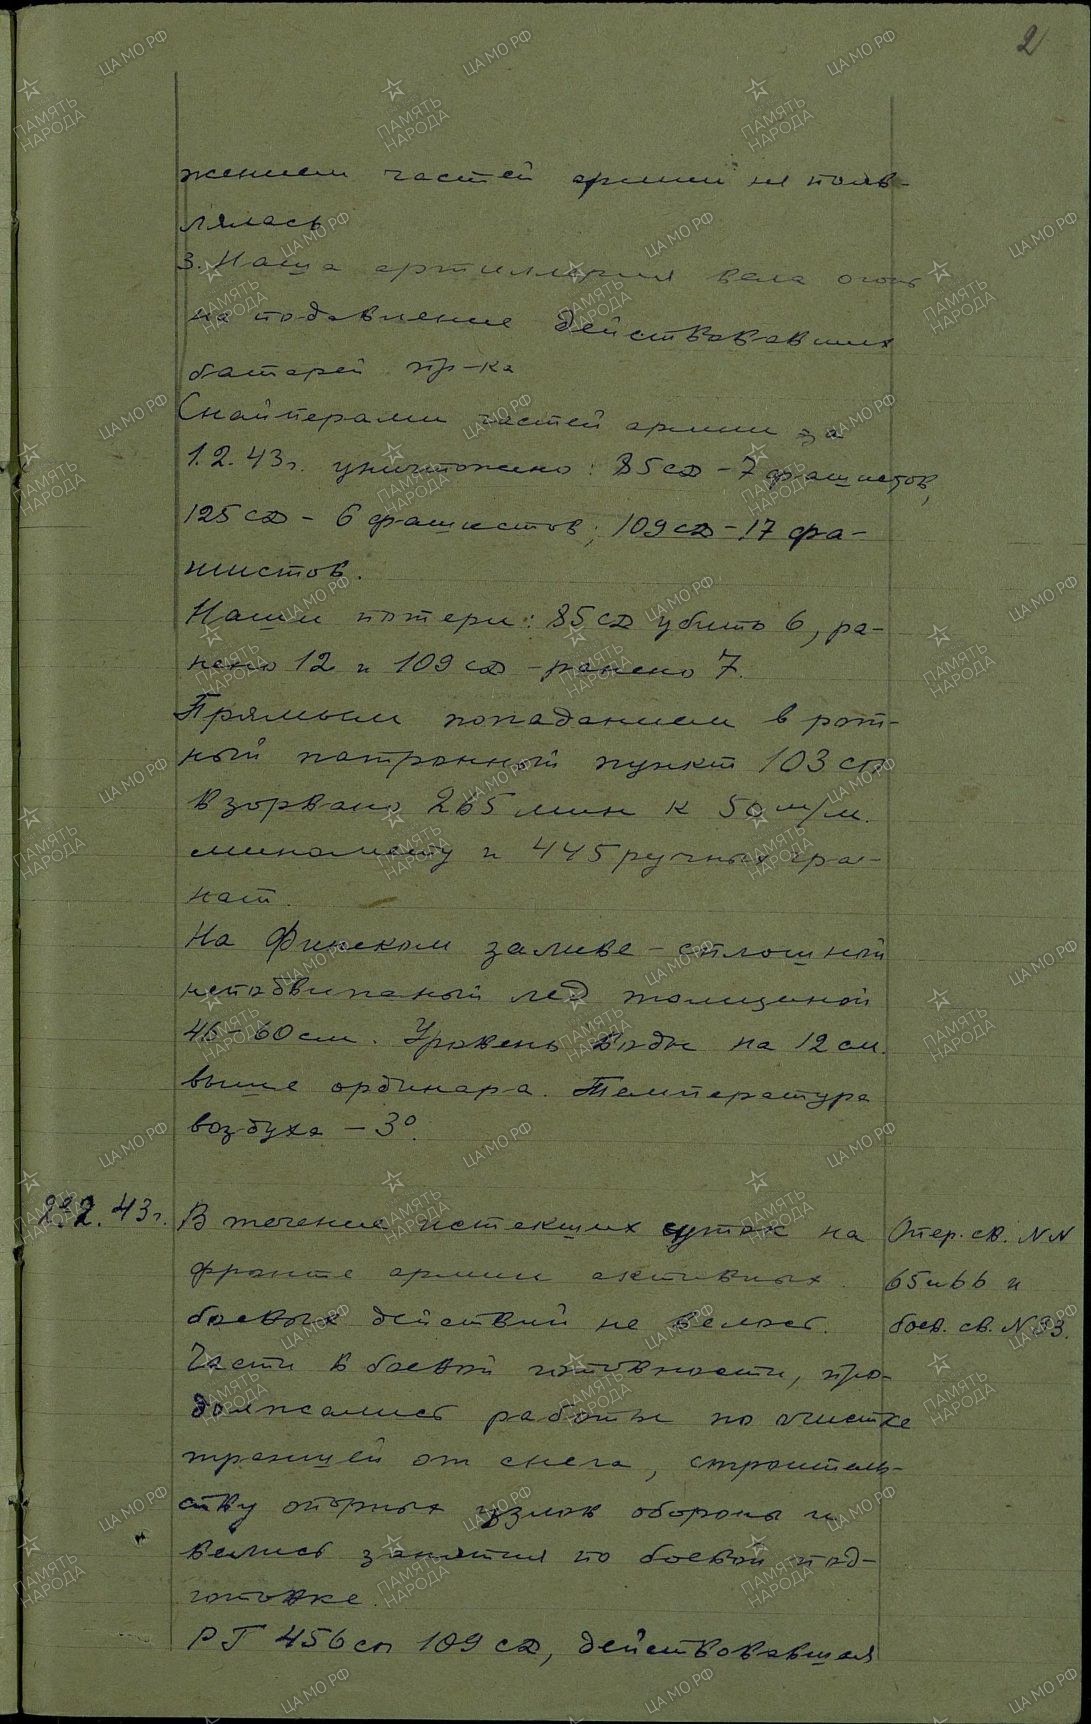 2
жением частей армии не появ-
лялась
3. Наша артиллерия вела огонь
на подавление действовавших
батарей пр-ка
Снайперами частей армии за
1.2.43г. уничтожено: 85сд - 7 фашистов,
125сд - 6 фашистов; 109сд - 17 фа-
шистов.
Наши потери: 85сд убито 6, ра-
нено 12 и 109сд - ранено 7.
Прямым попаданием в рот-
ный патронный пункт 103 сп
взорвано 265 мин к 50 м/м.
миномету и 445 ручных гра-
нат.
На Финском заливе - сплошной
неподвижный лёд толщиной
46-60см. Уровень воды на 12 см.
выше ординара. Температура
воздуха - 3°.
2.2.43г. В течение истекших суток на Опер. св. NN
фронте армии активных 65 и 66 и
боевых действий не велось. боев. св. N 33.
Части в боевой готовности, про-
должались работы по очистке
траншей от снега, строитель-
ству опорных узлов обороны и
велись занятия по боевой под-
готовке.
РГ 456сп 109сд, действовавшая